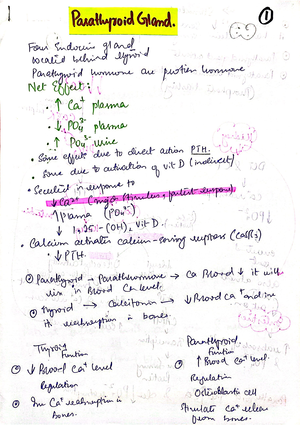 Parathyroid Gland.
①
Four Endocrin gland
located behind thyroid
Parathyroid hormone are protein hormone
Net Effect:
• ↑ Ca²⁺ plasma
• ↓ PO₄³⁻ plasma
• ↑ PO₄³⁻ urine
• Some effects due to direct action PTH.
• Some due to activation of vit D (indirect)
• Secreted in response to
↓ Ca²⁺ (major stimulus, potent response)
↑ Plasma (PO₄³⁻)
↓ 1,25-(OH)₂ Vit D.
• Calcium activates calcium-sensing receptors (CaSRs)
↓ PTH.
⊙ Parathyroid → Parathormone → Ca Blood ↓ it will
rise in Blood Ca level.
⊙ Thyroid → Calcitonin → ↓ Blood Ca²⁺ and
its reabsorption in bones.
Thyroid
Function
⊙ ↓ Blood Ca²⁺ level
Regulation
⊙ Inc Ca²⁺ reabsorption in
bones.
Parathyroid
Function
↑ Blood Ca²⁺ level.
Regulation
Osteoblastic cell
Stimulate Ca²⁺ release
from bones.